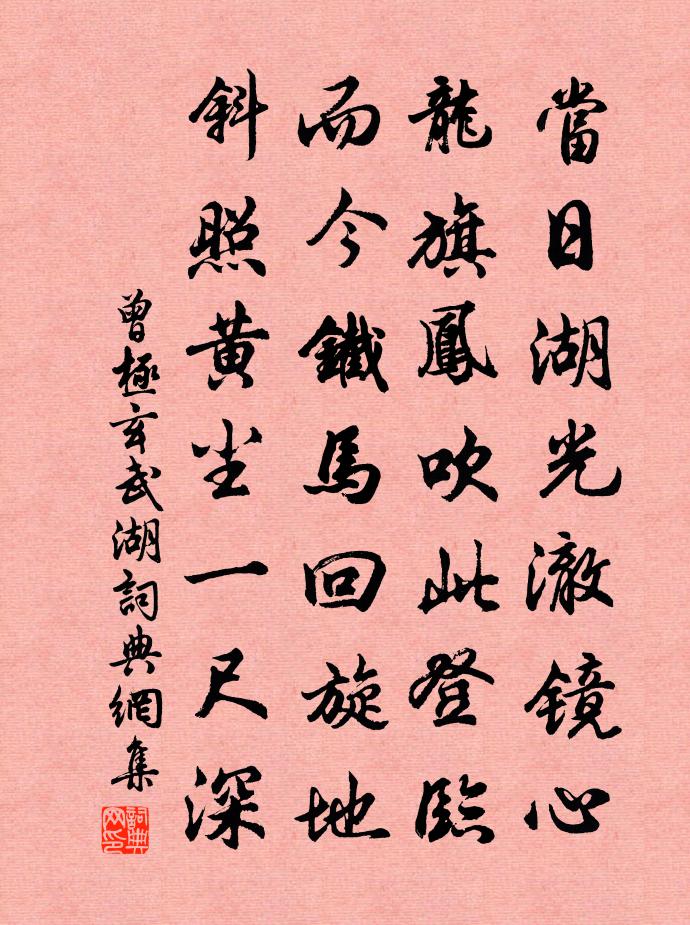 當日湖光澈鏡心
龍旗鳳吹此登臨
而今鐵馬回旋地
斜照黃尘一尺深
曾極玄武湖詞典網集
詞典网印